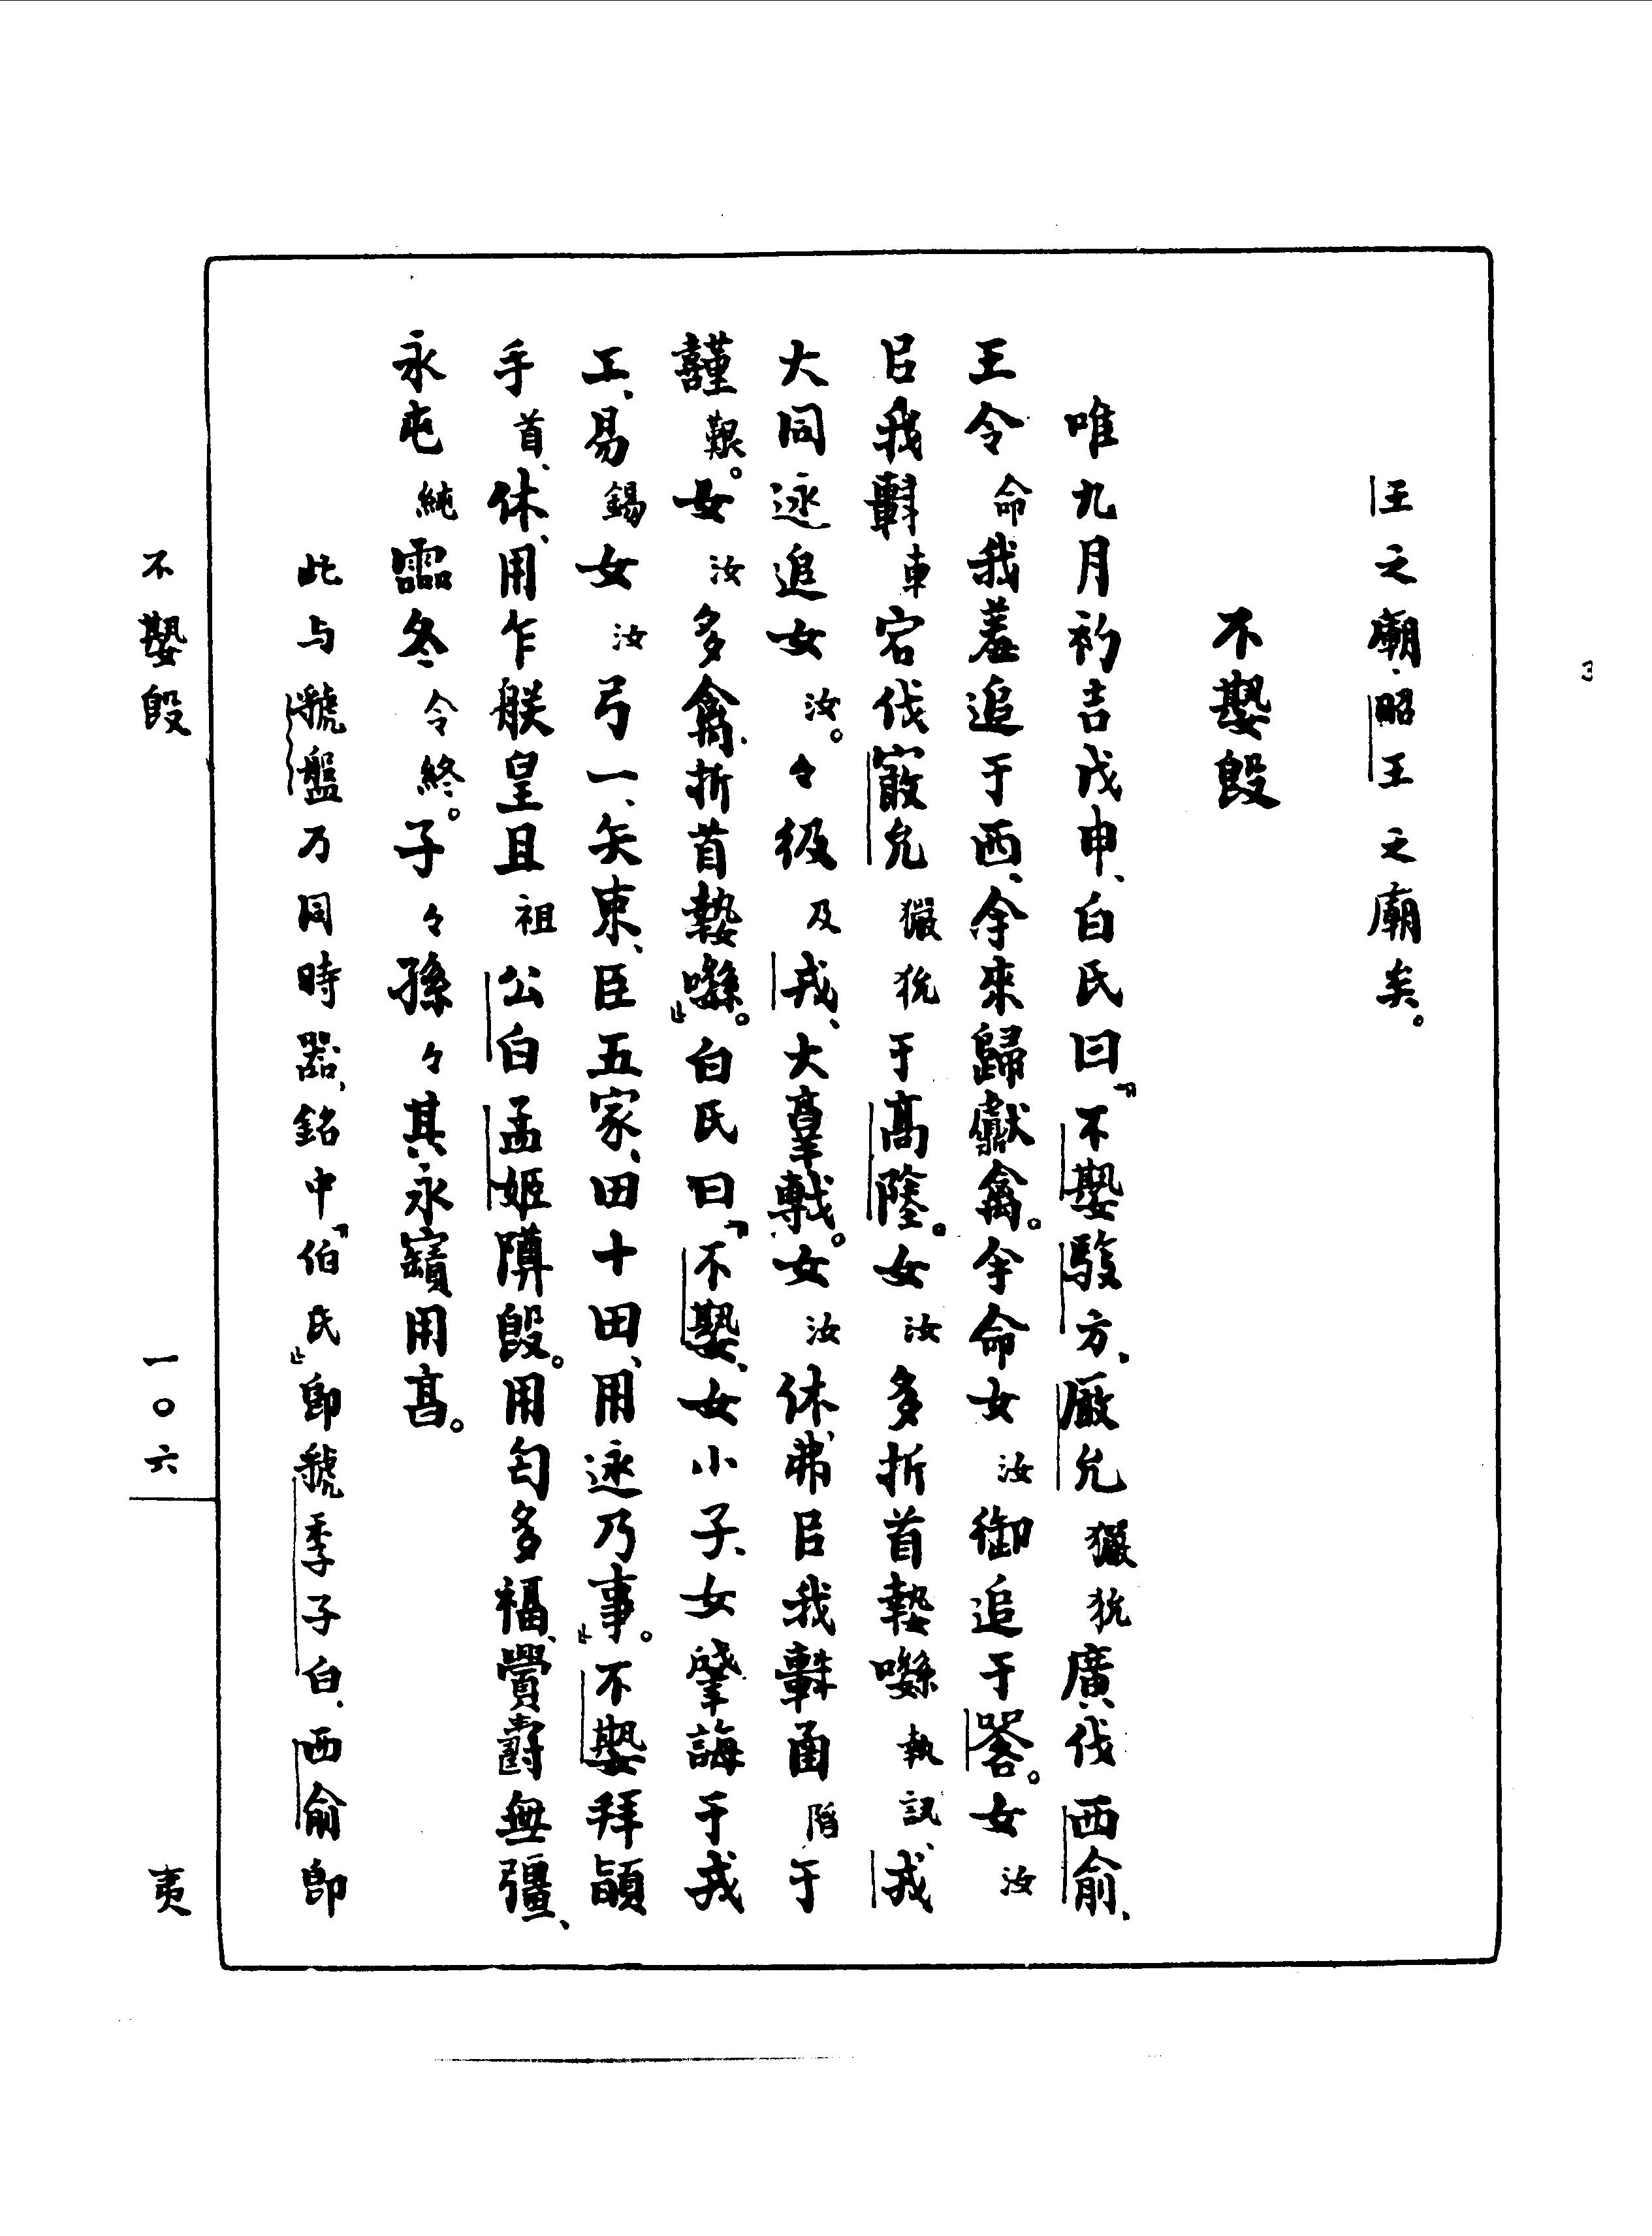 王之廟、昭王之廟矣。
不𡢁𣪘
唯九月初吉戊申、白氏曰「不𡢁、馭方、厰允玁狁廣伐西俞、
王令命我羞追于西、余來歸獻禽。余命女汝御追于䇂。女汝
㠯我車宕伐𠪚允玁狁于高陵。女汝多折首𡠗噝執訊、戎
大同迹追女汝。令彶及戎、大𦎫戟。女汝休、弗㠯我車圅陷于
囏艱。女汝多禽、折首𡠗噝」。白氏曰「不𡢁、女小子、女肇誨于戎
工、易錫女汝弓一、矢束、臣五家、田十田、用迹乃事」。不𡢁拜䭫
手首、休、用乍朕皇且祖公白孟姬䵼𣪘。用匄多福、眉壽無彊、
永屯純霝冬令終。子々孫々其永寶用亯。
此与虢盤乃同時器、銘中「伯氏」卽虢季子白、西俞卽
不𡢁𣪘
一〇六
夷
3